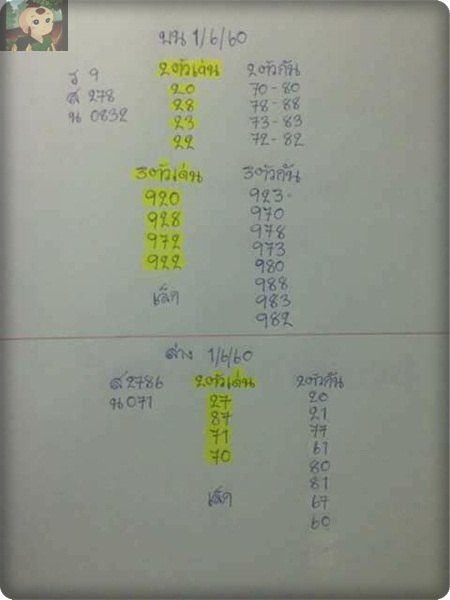 บน 1/6/60
ร 9
ส 278
น 0832
2ตัวเด่น
20
28
23
22
2ตัวกัน
70-80
78-88
73-83
72-82
3ตัวเด่น
920
928
972
922
3ตัวกัน
923
970
978
973
980
988
983
982
เล็ก
ล่าง 1/6/60
ส 2786
น 071
2ตัวเด่น
27
87
71
70
2ตัวกัน
20
21
77
61
80
81
67
60
เล็ก